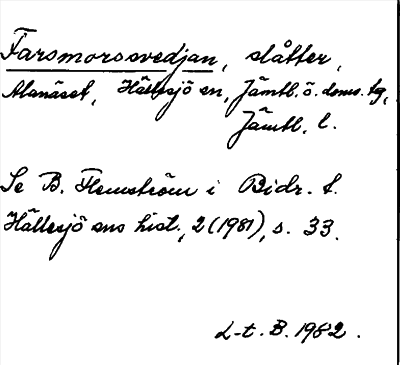 Farsmorsvedjan, slåtter,
Alanäset, Hällesjö sn, Jämtl. ö. doms. tg,
Jämtl. l.
Se B. Flemström i Bidr. t.
Hällesjö sns hist., 2 (1981), s. 33.
L-t. B. 1982.